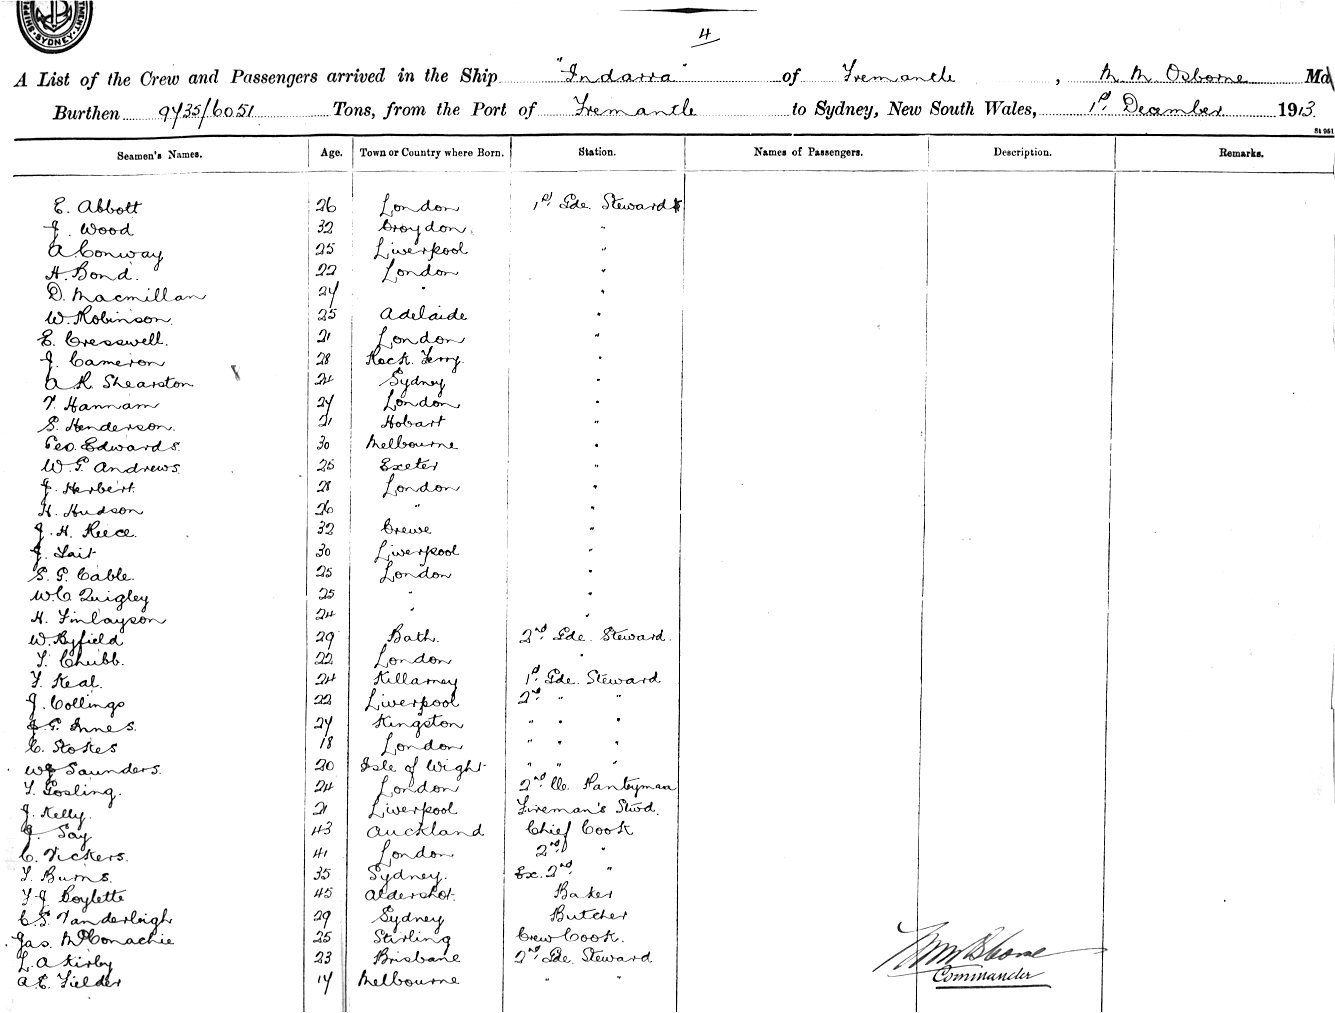 SYDNEY
4
A List of the Crew and Passengers arrived in the Ship "Indarra" of Fremantle, M. M. Osborne Ma
Burthen 9735/6051 Tons, from the Port of Fremantle to Sydney, New South Wales, 1st December 1913.
St 961
Seamen's Names. Age. Town or Country where Born. Station. Names of Passengers. Description. Remarks.
E. Abbott 26 London 1st Gde. Steward
J. Wood 32 Croydon. "
A Conway 25 Liverpool "
H. Bond. 22 London "
D. Macmillan 27 " "
W. Robinson. 25 Adelaide "
E. Cresswell. 21 London "
J. Cameron 28 Rock Ferry. "
A R. Shearston 24 Sydney "
T. Hannam 27 London "
S. Henderson. 21 Hobart "
Geo. Edwards. 30 Melbourne "
W. G. Andrews. 25 Exeter "
J. Herbert. 28 London "
H. Hudson 26 " "
J. H. Reece. 32 Crewe "
J. Tait 30 Liverpool "
S. G. Cable. 25 London "
W. C Quigley 25 " "
H. Finlayson 24 " "
W. Byfield 29 Bath. 2nd Gde. Steward.
T. Chubb. 22 London "
F. Keal. 24 Killarney 1st Gde. Steward
J. Collings 22 Liverpool 2nd " "
G. Innes. 27 Kingston " " "
C. Stokes 18 London " " "
W J Saunders. 20 Isle of Wight " " "
F. Gosling. 24 London 2nd Cl. Pantryman
J. Kelly. 21 Liverpool Fireman's Stwd.
J. Say 43 Auckland Chief Cook
C. Vickers. 41 London 2nd "
F. Burns. 35 Sydney. Ex. 2nd "
F J Coylette 45 Aldershot. Baker
C S. Vanderleigh 29 Sydney Butcher
Jas. McConachie 25 Stirling Crew Cook.
L. A Kirby 23 Brisbane 2nd Gde. Steward
A E. Fielder 17 Melbourne " "
M M Osborne
Commander